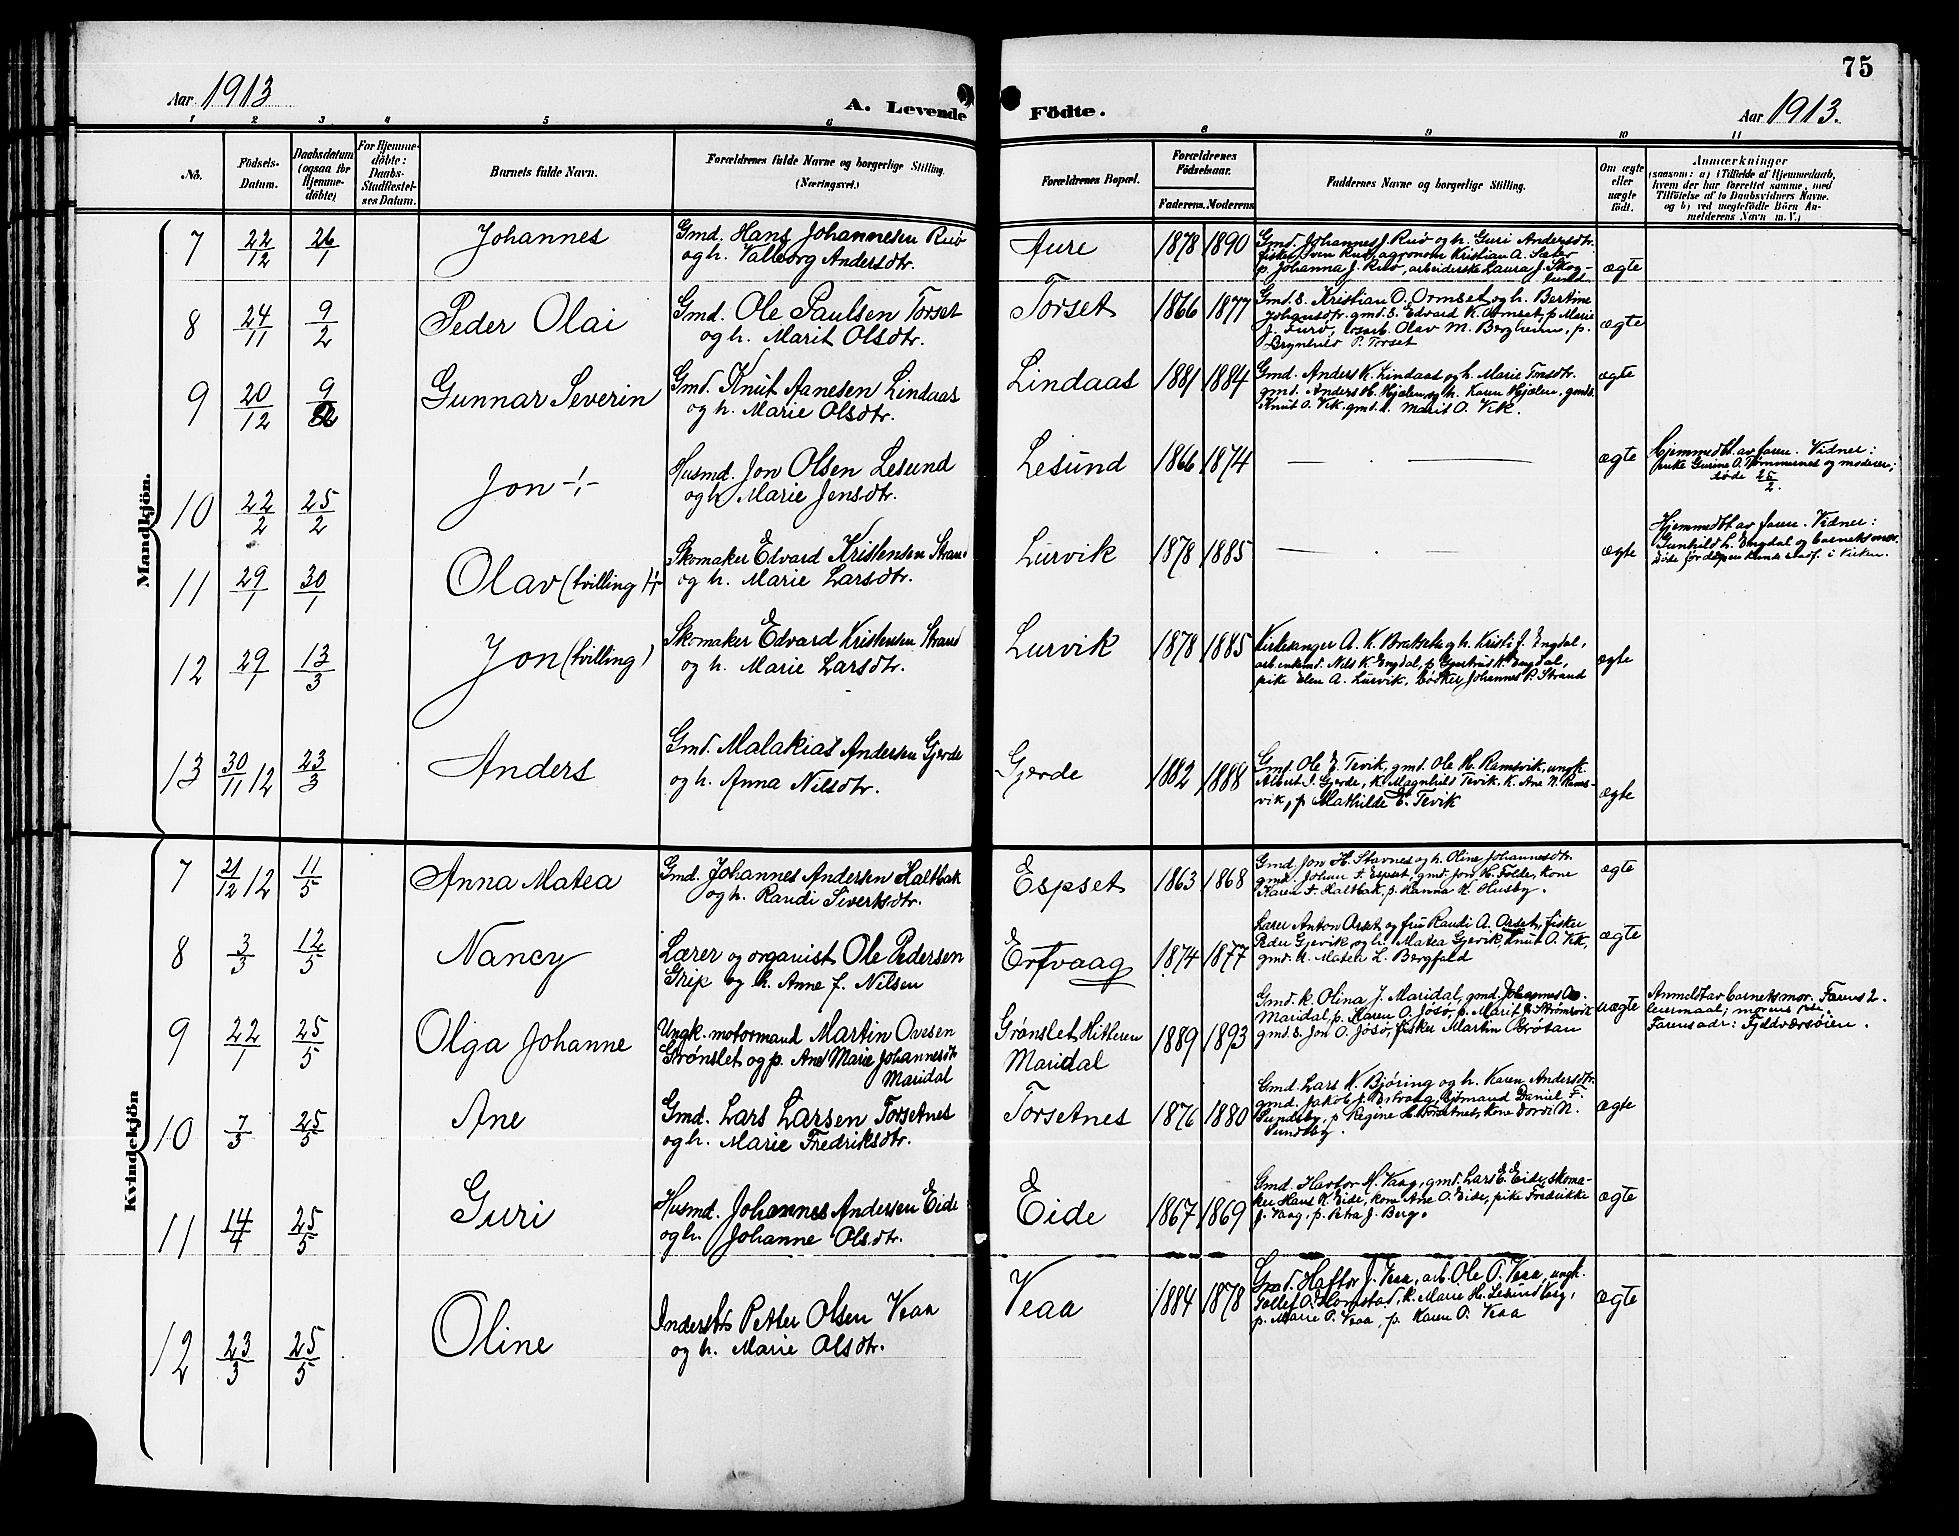 75
Aar 1913
A. Levende Födte.
Aar 1913.
1 2 3 4 5 6 8 9 10 11
No.
Födsels-Datum.
Daabsdatum (ogsaa for Hjemmedöbte)
For Hjemmedöbte: Daabs-Stadfæstelses Datum.
Barnets fulde Navn.
Forældrenes fulde Navne og borgerlige Stilling. (Næringsvei.)
Forældrenes Bopæl.
Forældrenes Födselsaar.
Faderens. Moderens
Faddernes Navne og borgerlige Stilling.
Om ægte eller uægte födt.
Anmærkninger
(saasom: a) i Tilfælde af Hjemmedaab,
hvem der har forrettet samme, med
Tilföielse af to Daabsvidners Navne.
og b) ved uægtefödte Börn An-
melderens Navn m. V.)
Mandkjön.
7 22/12 26/1 Johannes
Gmd. Hans Johannesen Ruø
og h. Valborg Andersdtr.
Aure 1878 1890
Gmd. Johannes J. Ruø og h. Guri Andersdtr.
fisker Iven Ruø, agronom Kristian A. Sæter
p. Johanna J. Ruø, arbeiderske Laura J. Skog-
lund
ægte
8 24/11 9/2 Peder Olai
Gmd. Ole Paulsen Torset
og h. Marit Olsdtr.
Torset 1866 1877
Gmd. s. Kristian O. Ormset og h. Bertine
Johansdtr. gmd. s. Edvard K. Ormset, p. Marie
J. Furø, losarb. Olav M. Bergheim, p.
Brynhild P. Torset
ægte
9 20/12 9/2 Gunnar Severin
Gmd. Knut Aanesen Lindaas
og h. Marie Olsdtr.
Lindaas 1881 1884
Gmd. Anders K. Lindaas og h. Marie Tmsdtr.
gmd. Anders H. Hjalen, og h. Karen Hjalen, gmds.
Knut O. Vik, gmd. d. Marit O. Vik.
ægte
10 22/2 25/2 Jon -!-
Husmd. Jon Olsen Lesund
og h. Marie Jensdtr.
Lesund 1866 1874
— —
ægte
Hjemmedbt. av faren. Vidner:
pike Gurine O. Tømmernes og moderen;
døde 25/2.
11 29/1 30/1 Olav (tvilling) -!-
Skomaker Edvard Kristensen Strand
og h. Marie Larsdtr.
Lurvik 1878 1885
— —
ægte
Hjemmedbt av faren. Vidner:
Gunhild L. Engdal og barnets mor.
Døde før dåpen kunde stadf. i kirken.
12 29/1 13/3 Jon (tvilling)
Skomaker Edvard Kristensen Strand
og h. Marie Larsdtr.
Lurvik 1878 1885
Kirkesanger A. K. Bratset og h. Kristi J. Engdal,
arb. enkmd. Nils K. Engdal, p. Gjertrud K. Engdal,
pike Elen A. Lurvik, bødker Johannes P. Strand
ægte
13 30/11 12 23/3 Anders
Gmd. Malakias Andersen Gjerde
og h. Anna Nilsdtr.
Gjerde 1882 1888
Gmd. Ole E. Tevik, gmd. Ole H. Ramsvik, ungk.
Albert I. Gjerde, k. Magnhild Tevik, k. Ane N. Rams-
vik, p. Mathilde E. Tevik
ægte
Kvindekjön
7 21/12 12 11/5 Anna Matea
Gmd. Johannes Andersen Haltbak
og h. Randi Sivertsdtr.
Espset 1863 1868
Gmd. Jon H. Stavnes og h. Oline Johannesdtr.
gmd. Johan t. Espset, gmd. Jon K. Folde, kone
Karen t. Haltbak, p. Hanna K. Husby.
ægte
8 3/3 12/5 Nancy
Lærer og organist Ole Pedersen
Grip og h. Anne f. Nilsen
Ertvaag 1874 1877
Lærer Anton Orset og fru Randi A. Orset, fisker
Peder Gjevik, og h. Matea Gjevik, Knut O. Vik,
gmd. d. Maten L. Bergfald
ægte
9 22/1 25/5 Olga Johanne
Ungk. motormand Martin Ovesen
Grønslet og p. Ane Marie Johannesdtr
Maridal
Grønslet Hitteren
Maridal
1889 1893
Gmd. k. Olina J. Maridal, gmd. Johannes O.
Maridal, p. Karen O. Jøsø, p. Marit J. Strømsvik
gmd. s. Jon O. Jøsø, fisker Martin Grøtan
uægte
Anmeldt av barnets mor. Farens 2.
leiermaal; morens 1ste.
Farens adr: Fjeldværsøien.
10 7/3 25/5 Ane
Gmd. Lars Larsen Torsetnes
og h. Marie Fredriksdtr.
Torsetnes 1876 1880
Gmd. Lars K. Bjøring og h. Karen Andersdtr.
gmd. Jakob J. Ertvaag, sjømand Daniel F.
Sundsby, p. Regine L. Torsetnes, kone Dorvi N.
Sundsby.
ægte
11 14/4 25/5 Guri
Husmd. Johannes Andersen Eide
og h. Johanne Olsdtr.
Eide 1867 1869
Gmd. Havtor M. Vaag, gmd. Lars E. Eide, skoma-
ker Hans K. Eide, kone Ane O. Eide, pike Fredrikke
J. Vaag, p. Petra J. Berg.
ægte
12 23/3 25/5 Oline
Inderst Petter Olsen Veaa
og h. Marie Olsdtr.
Veaa 1884 1878
Gmd. Haftor J. Veaa, arb. Ole P. Veaa, ungk.
Tollef O. Homstad, k. Marie H. Lesundberg,
p. Marie P. Veaa, p. Karen P. Veaa
ægte